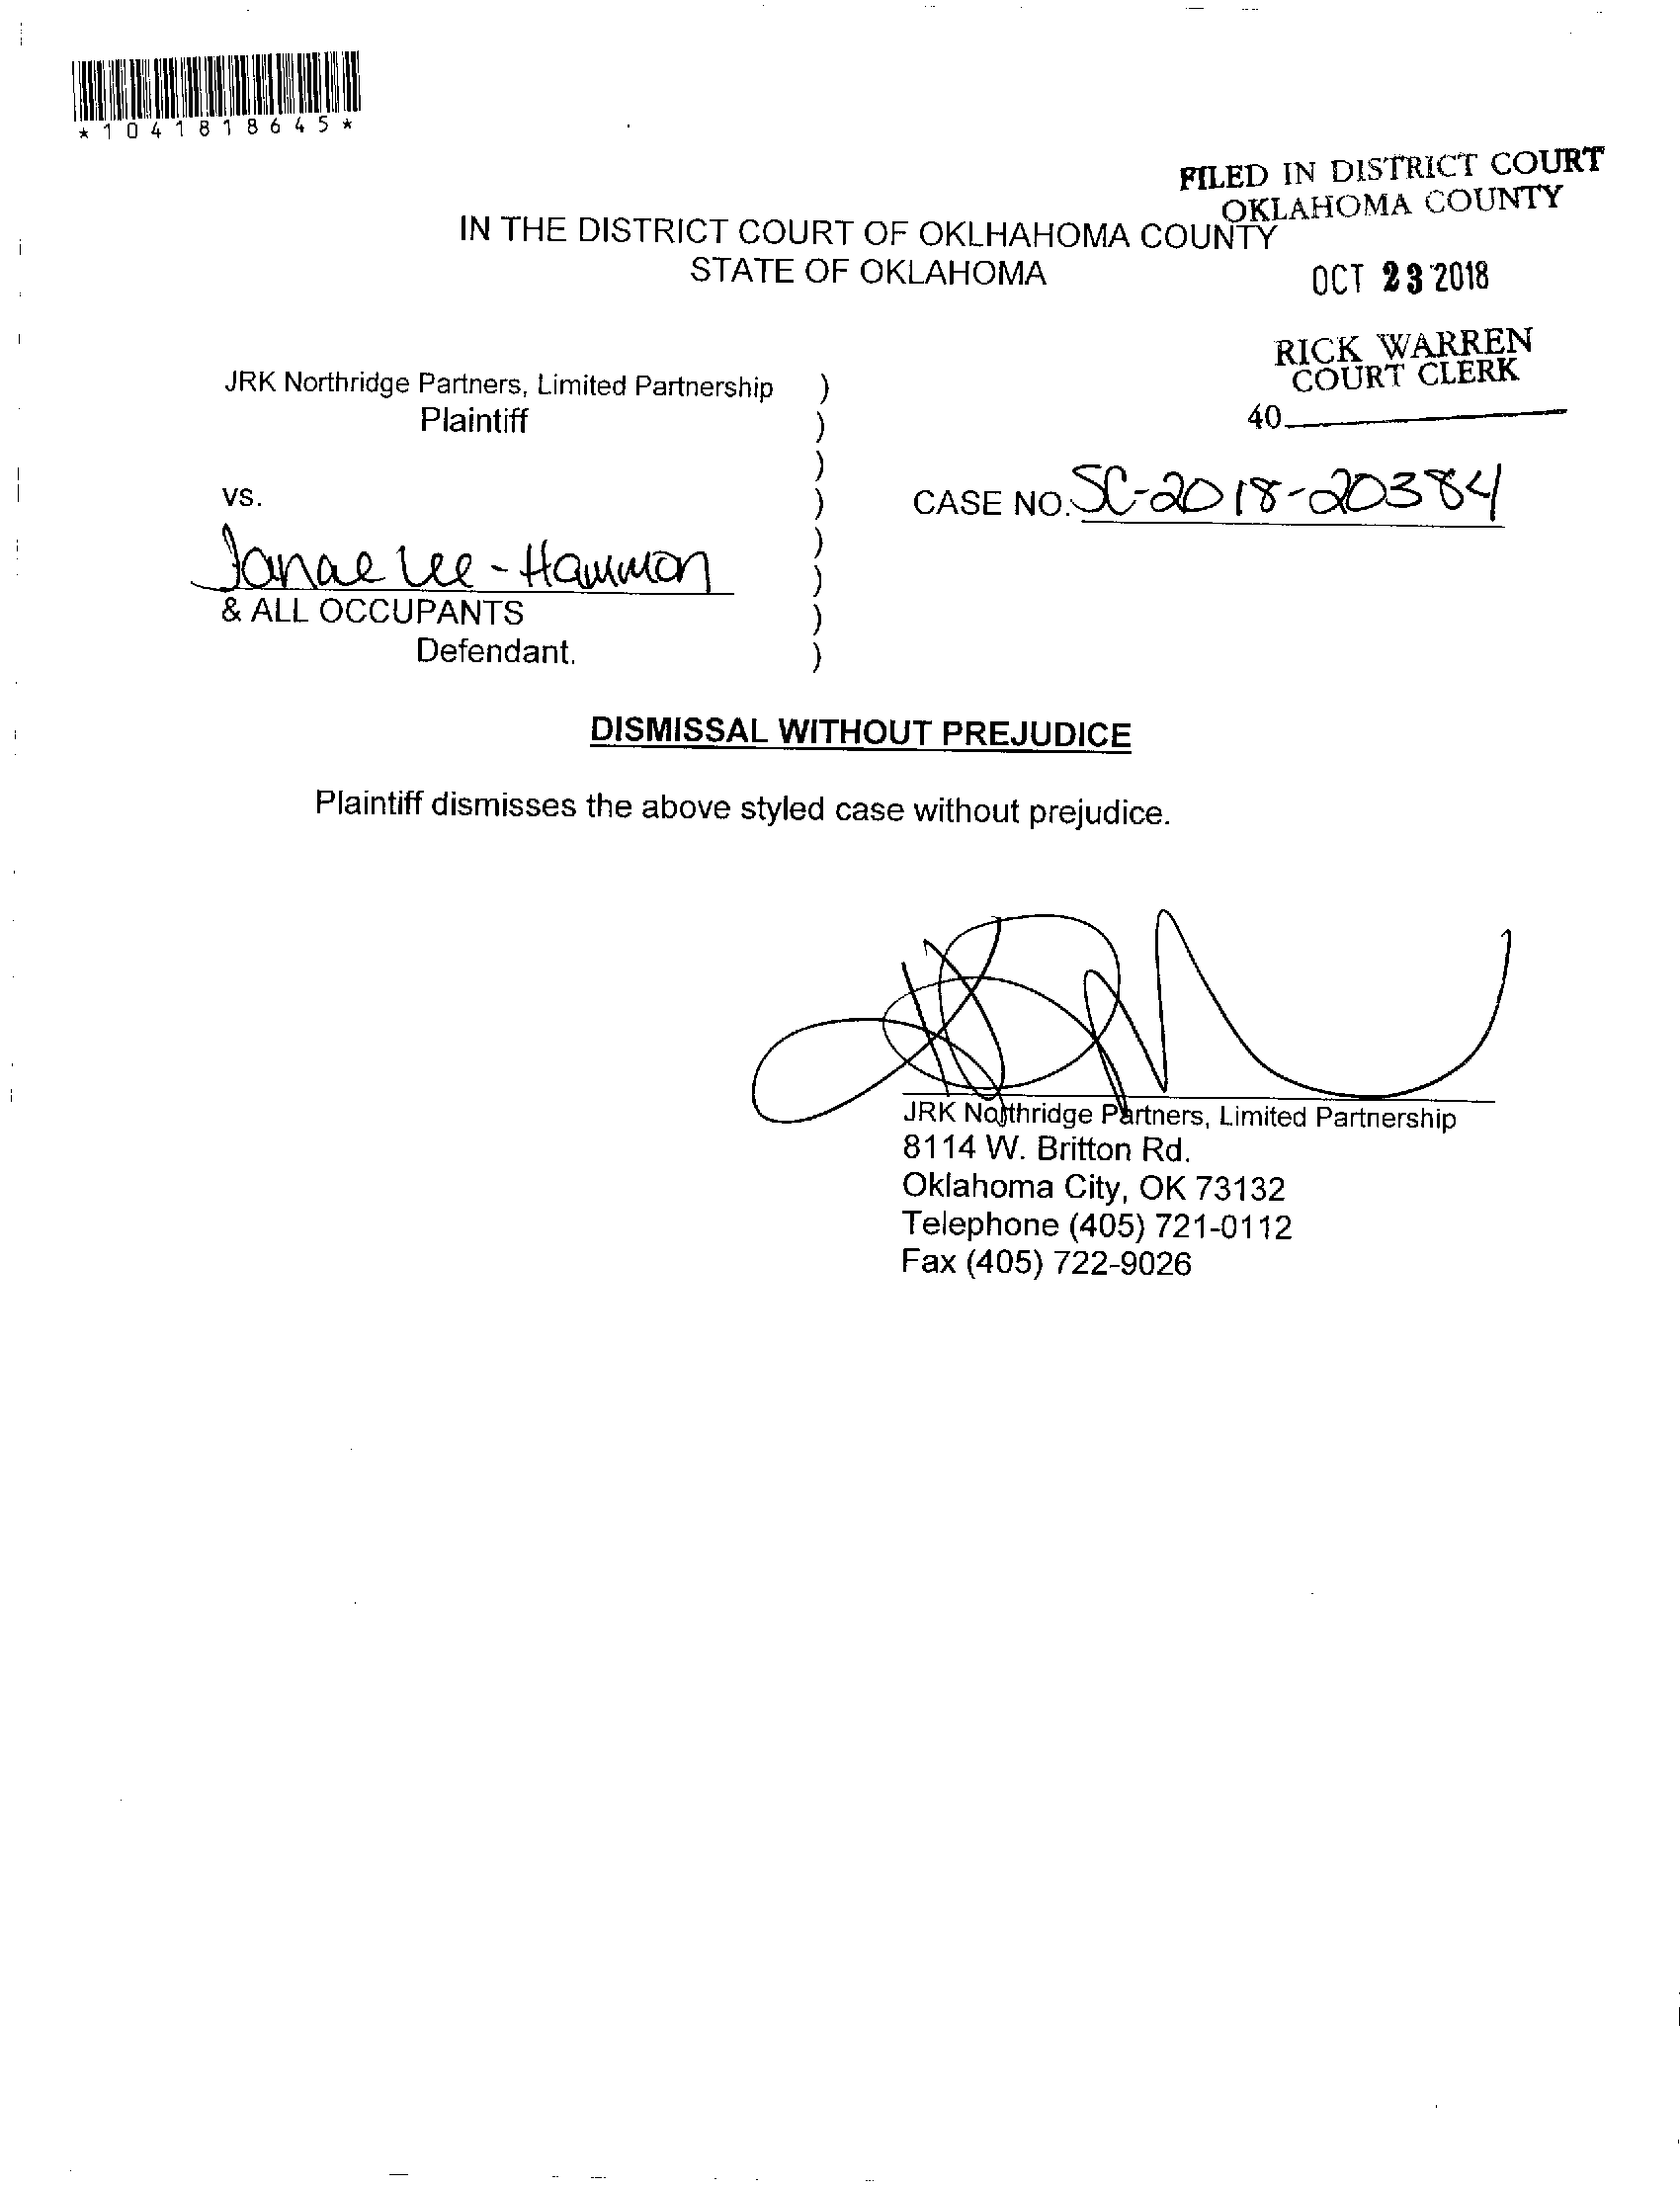 *1041818645*
FILED IN DISTRICT COURT
OKLAHOMA COUNTY
IN THE DISTRICT COURT OF OKLHAHOMA COUNTY
STATE OF OKLAHOMA
OCT 23 2018
RICK WARREN
COURT CLERK
40
JRK Northridge Partners, Limited Partnership )
Plaintiff )
)
vs. ) CASE NO. SC-2018-20384
)
Janae Lee-Hammon )
& ALL OCCUPANTS )
Defendant. )
DISMISSAL WITHOUT PREJUDICE
Plaintiff dismisses the above styled case without prejudice.
JRK Northridge Partners, Limited Partnership
8114 W. Britton Rd.
Oklahoma City, OK 73132
Telephone (405) 721-0112
Fax (405) 722-9026